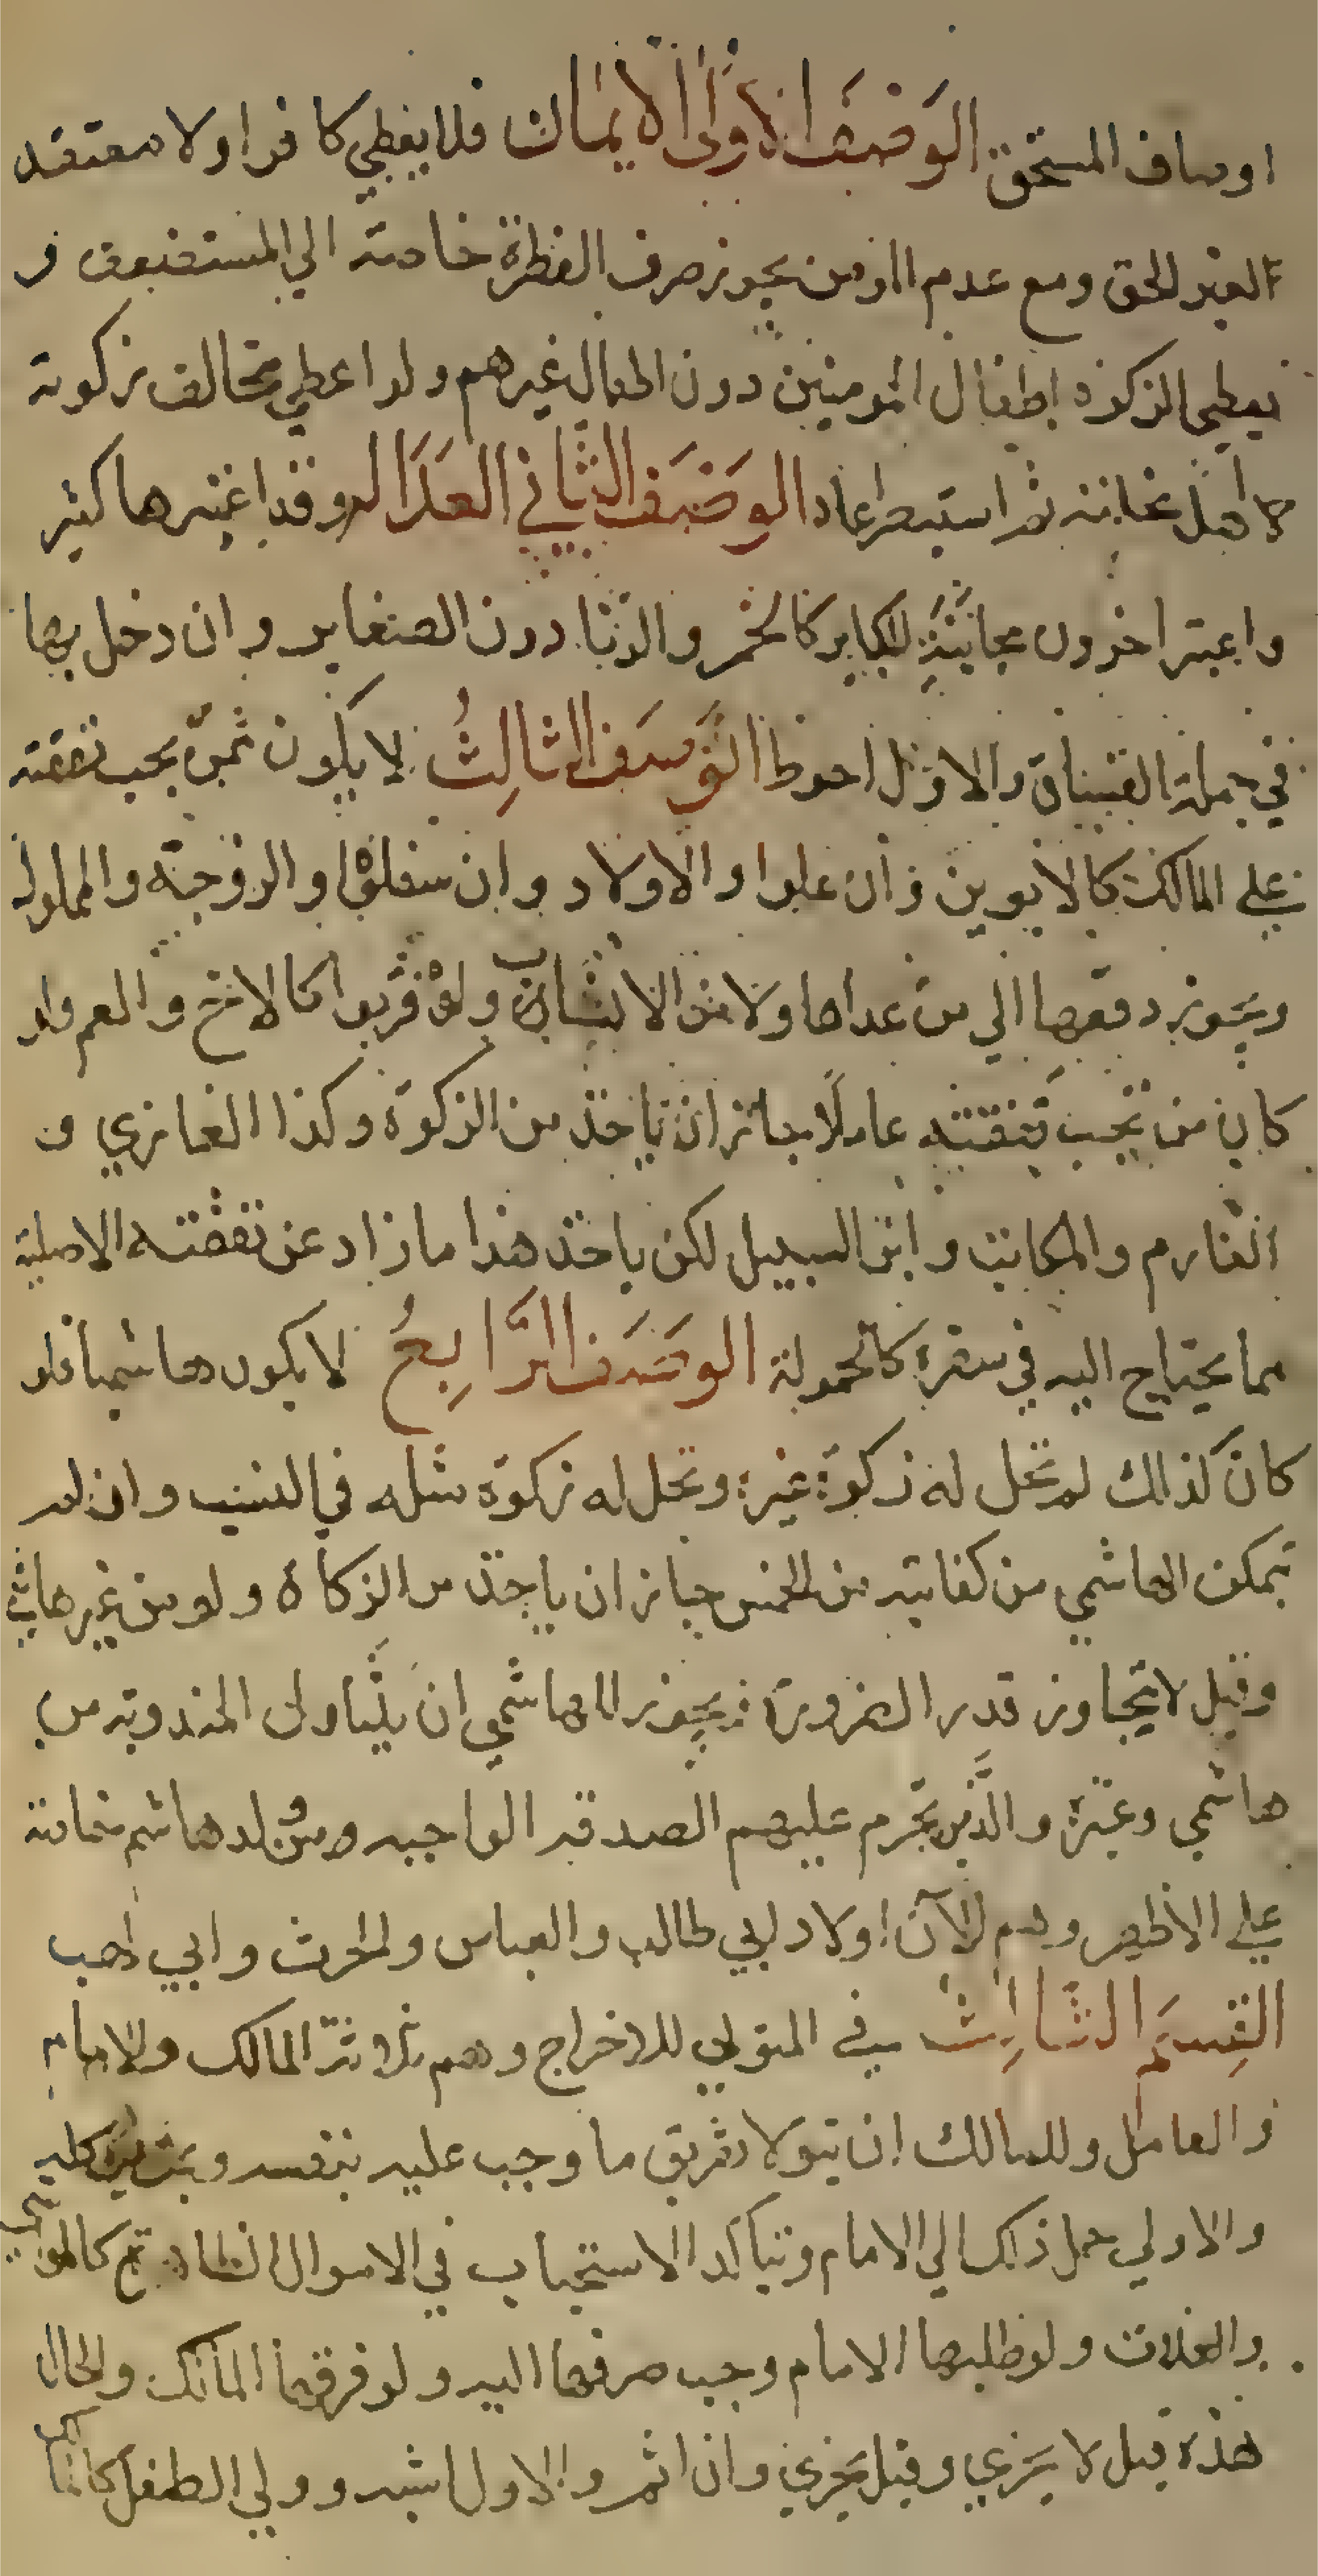 اوصاف المستحق الوصف الاول الايمان فلا يعطي كافرا ولا معتقد
لغير الحق ومع عدم المؤمن يجوز صرف الفطرة خاصة الي المستضعف و
يعطي الزكوة اطفال المومنين دون اطفال غيرهم ولو اعطي مخالف زكوته
لاهل نحلته ثم استبصر اعاد الوصف الثاني العدالة وقد اعتبرها كثير
واعتبر اخرون مجانبة الكباير كالخمر والزنا دون الصغاير وان دخل بها
في جملة الفساق والاول احوط الوصف الثالث لا يكون ممن يجب نفقته
علي المالك كالابوين وان علوا والاولاد وان سفلوا والزوجة والمملوك
ويجوز دفعها الي من عداها ولا من الانساب ولو قربوا كالاخ والعم ولو
كان من تجب نفقته عاملا جاز ان ياخذ من الزكوة وكذا الغازي و
الغارم والمكاتب وابن السبيل لكن ياخذ هذا ما زاد عن نفقته الاصلية
مما يحتاج اليه في سفره كالحمولة الوصف الرابع لا يكون هاشميا فلو
كان كذالك لم تحل له زكوة غيره وتحل له زكوة مثله في النسب وان لم
تمكن الهاشمي من كفايته من الخمس جاز ان ياخذ من الزكاة ولو من غير هاشمي
وقيل لا يتجاوز قدر الضرورة ويجوز للهاشمي ان يتناول المندوبة من
هاشمي وغيره والذين تحرم عليهم الصدقة الواجبه من ولد هاشم خاصة
علي الاظهر وهم الآن اولاد ابي طالب والعباس والحرث وابي لهب
القسم الثالث في المتولي للاخراج وهم ثلاثة المالك والامام
والعامل وللمالك ان يتولا تفريق ما وجب عليه بنفسه وبمن يوكله
والاولي حمل ذلك الي الامام ويتأكد الاستحباب في الاموال الظاهرة كالمواشي
والغلات ولو طلبها الامام وجب صرفها اليه ولو فرقها المالك والحال
هذه قيل لا يجزي وقيل يجزي وان اثم والاول اشبه وولي الطفل كالمالك